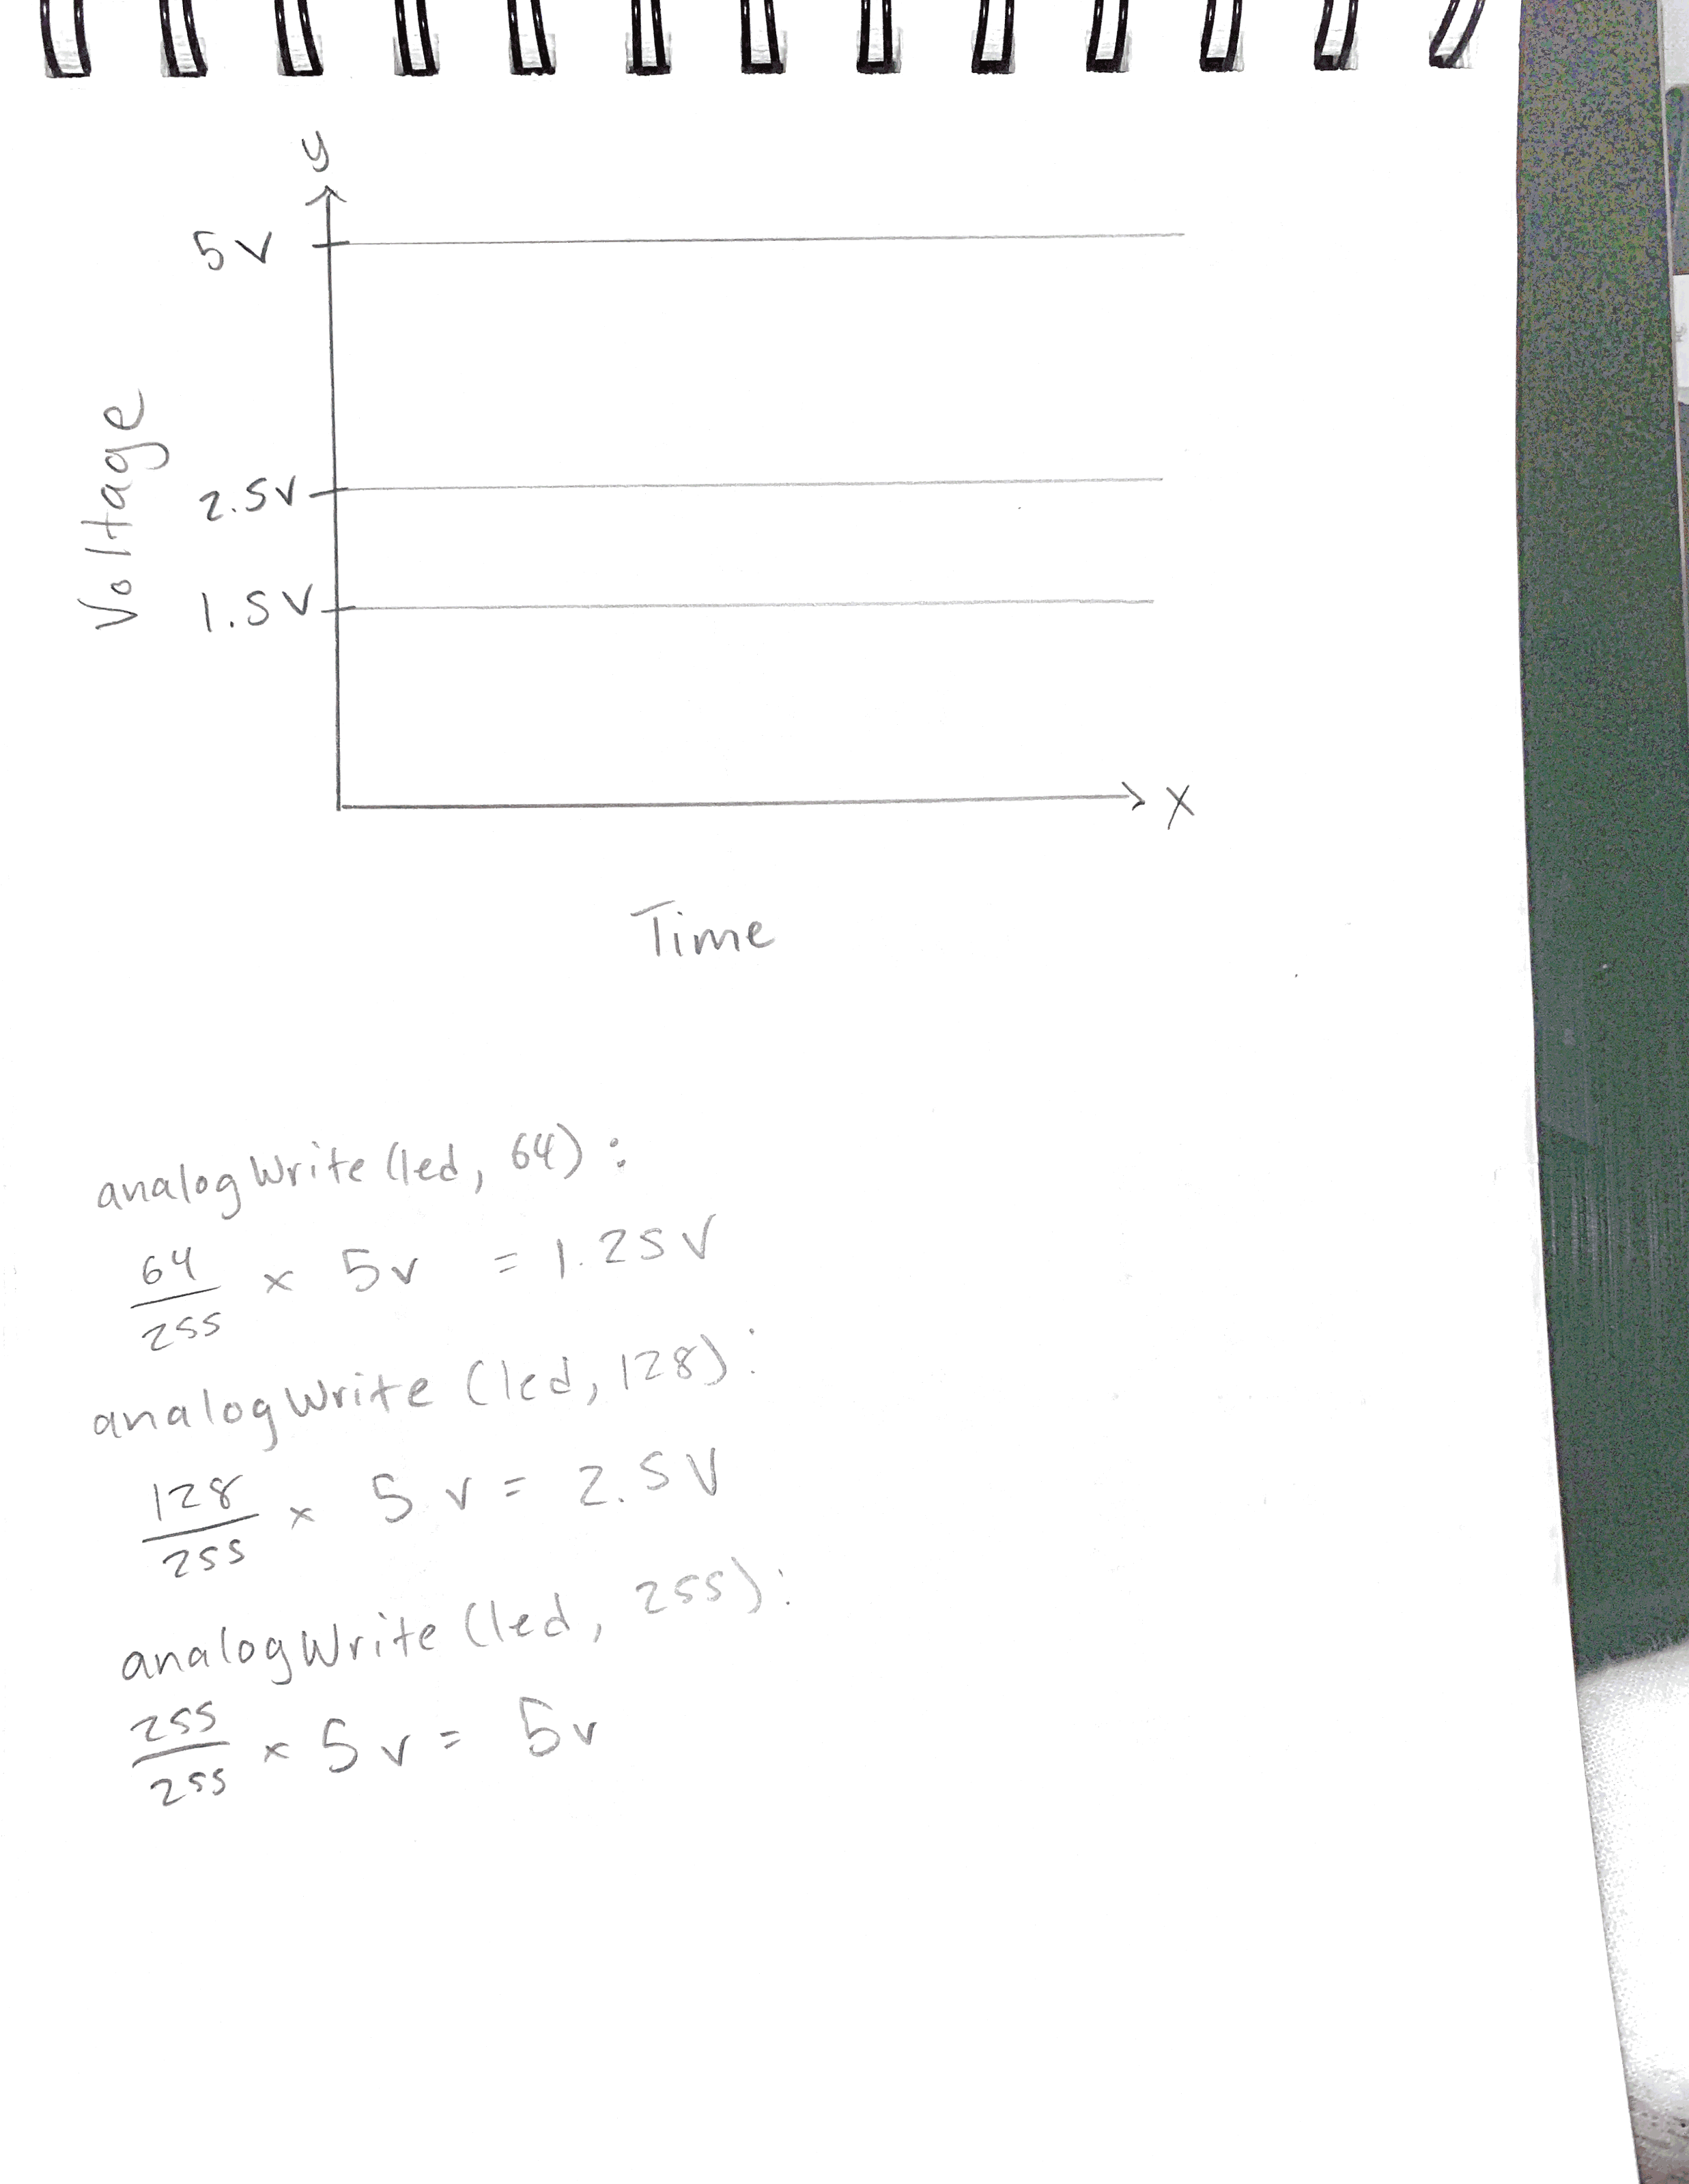 y
5v
Voltage
2.5V
1.5V
x
Time
analogWrite(led, 64):
64/255 x 5v = 1.25V
analogWrite(led, 128):
128/255 x 5v = 2.5V
analogWrite(led, 255):
255/255 x 5v = 5v